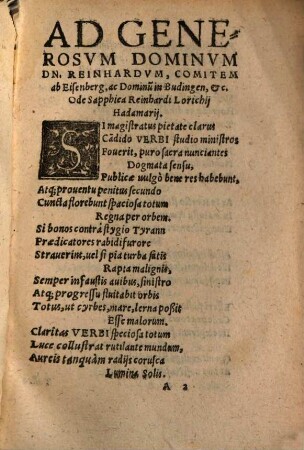 AD GENE-
ROSVM DOMINVM
DN. REINHARDVM, COMITEM
ab Eisenberg, ac Dominū in Budingen, &c.
Ode Sapphica Reinhardi Lorichij
Hadamarij.
SI magistratus pietate clarus
Cādido VERBI studio ministros
Fouerit, puro sacra nunciantes
Dogmata sensu,
Publicæ uulgò bene res habebunt,
Atq; prouentu penitus secundo
Cuncta florebunt spaciosa totum
Regna per orbem.
Si bonos contrà stygio Tyrann
Prædicatores rabidi furore
Strauerint, uel si pia turba
Rapta malignis,
Semper infaustis auibus, sinistro
Atq; progressu fluitabit orbis
Totus, ut cyrbes, mare, lerna poßit
Esse malorum.
Claritas VERBI speciosa totum
Luce collustrat rutilante mundum,
Aureis tanquàm radijs corusca
Lumina Solis.
A 2